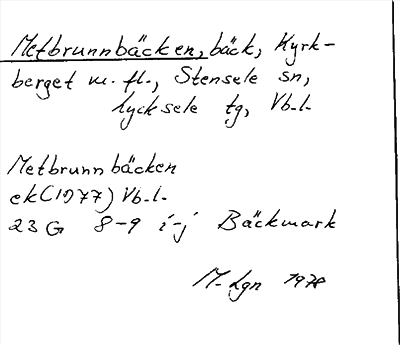 Metbrunnbäcken, bäck, Kyrk-
berget m. fl., Stensele sn,
Lycksele tg, Vb. l.
Metbrunnbäcken
ek (1977) Vb. l.
23 G 8-9 i-j Bäckmark
M. Lgn 1978